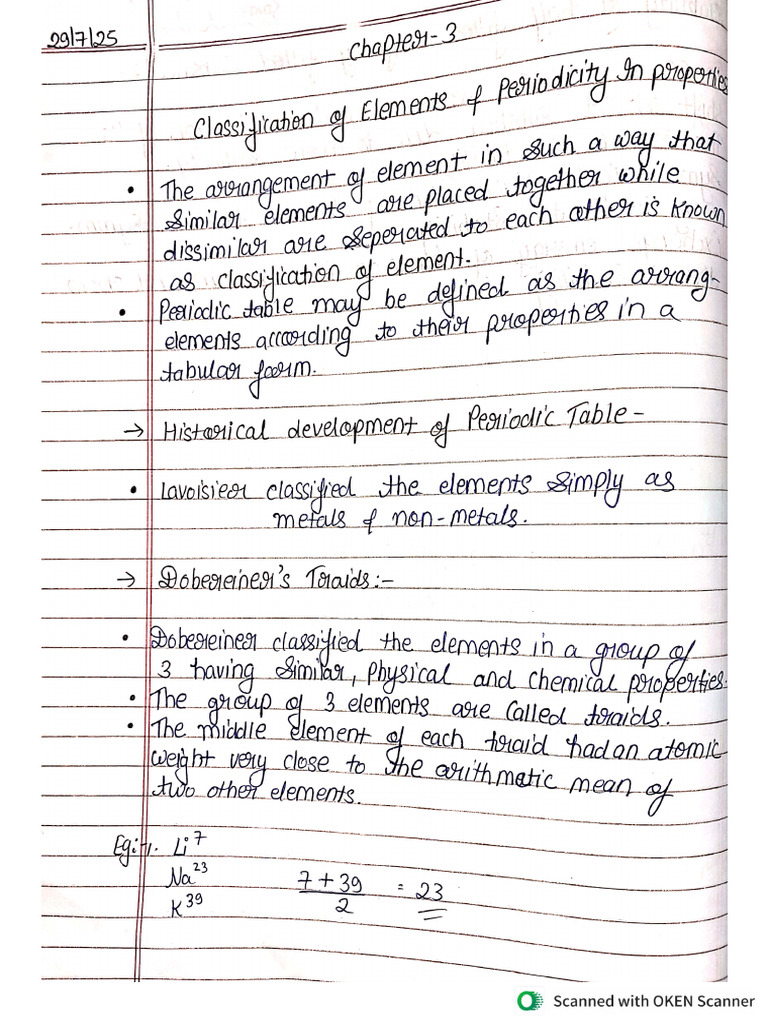 29/7/25
Chapter-3
Classification of Elements & Periodicity In properties
• The arrangement of element in such a way that
similar elements are placed together while
dissimilar are seperated to each other is known
as classification of element.
• Periodic table may be defined as the arrang-
elements according to their properties in a
tabular form.
→ Historical development of Periodic Table-
• Lavoisier classified the elements simply as
metals & non-metals.
→ Dobereiner's Traids:-
• Dobereiner classified the elements in a group of
3 having similar, physical and chemical properties.
• The group of 3 elements are called traids.
• The middle element of each traid had an atomic
weight very close to the arithmetic mean of
two other elements.
Eg:-1. Li⁷
Na²³
K³⁹
7 + 39 / 2 = 23
Scanned with OKEN Scanner